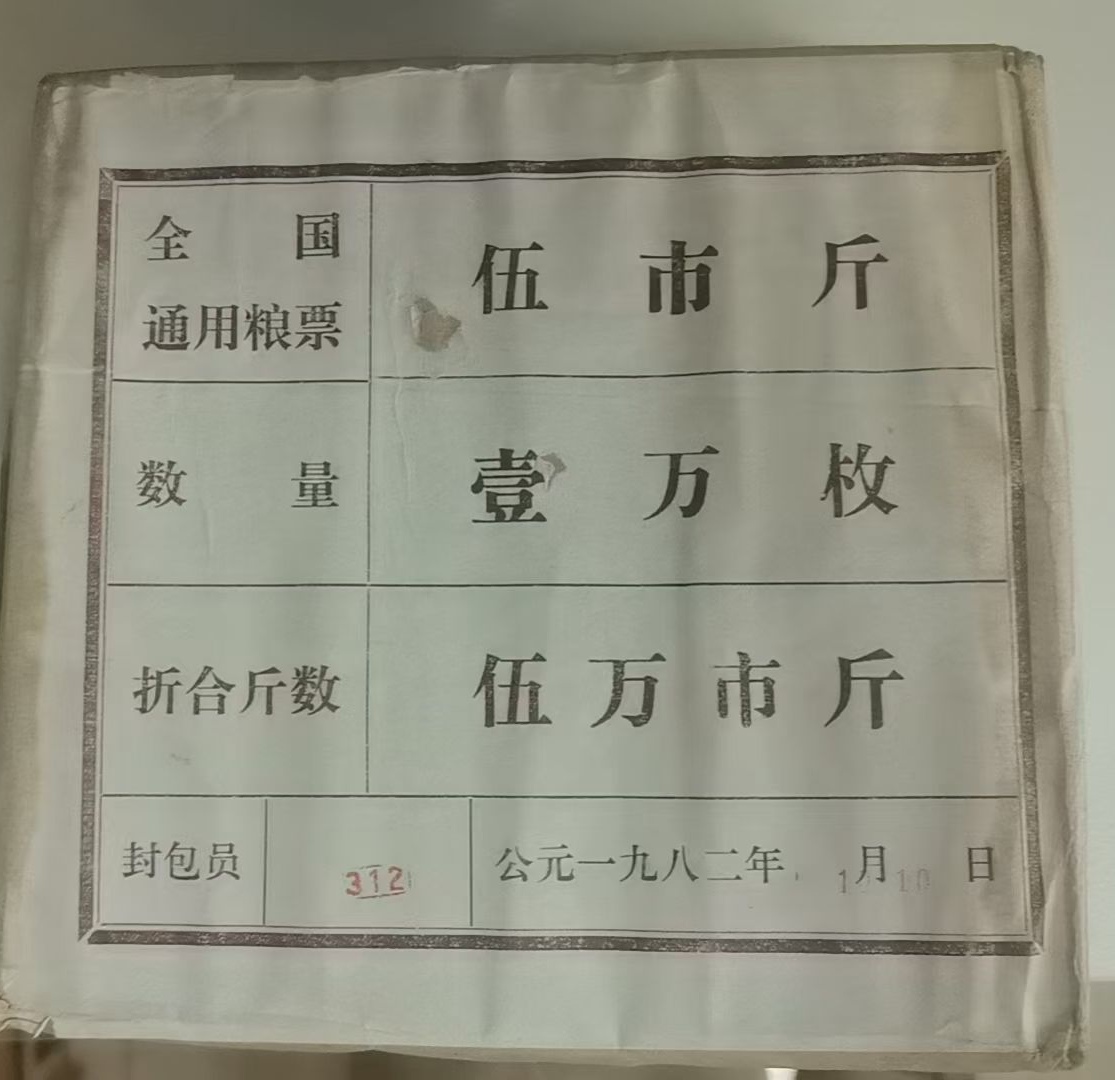 全国 伍市斤
通用粮票
数量 壹万枚
折合斤数 伍万市斤
封包员 312 公元一九八二年 月10日